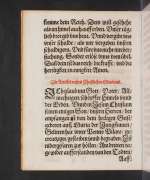 komme dein Reich. Dein will geschehe
als im himel auch auff erden. Unser täg-
lich brod gib uns heut. Und vergib uns
unser schulde / als wir vergeben unsern
schuldigern. Und für uns nicht in versu-
chung. Sonder erlöß uns vom übel.
dein ist das reich / die krafft / und die
herrligkeit in ewigkeit Amen.
Die Artickel des Christlichen Glaubens.
ICh glaub inn Gott / Vater / All-
mechtigen schöpffer himels und
der Erden. Und in Jesum Christum
seinen einigen Son / unsern Herren / der
empfangen ist von dem heiligen Geist /
geboren auß Maria der Jungfrawen /
Gelitten hat unter Pontio Pilato / ge-
creutziget / gestorben und begraben / Ni-
dergestigen zu der Hellen / Am dritten ta-
ge wider aufferstanden von den Todten
Auff